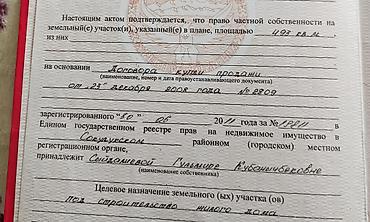 Настоящим актом подтверждается, что право частной собственности на
земельный(е) участок(и), указанный(е) в плане, площадью 493 кв.м.
из них
на основании Договора купли продажи
(наименование, номер и дата правоустанавливающего документа)
от 25 декабря 2008 года №8809
зарегистрированного "30" 06 2011 за №
Едином государственном реестре прав на недвижимое имущество в
Сокулукском районном (городском) местном
регистрационном органе,
принадлежит Сейдалиевой Гульмире Кубанычбековне
(наименование собственника)
Целевое назначение земельного (ых) участка (ов)
под строительство жилого дома